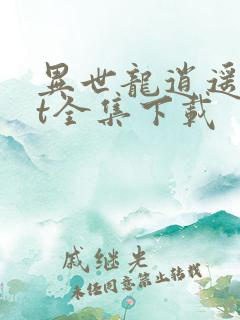 異世龍逍遥
t全集下载
戚继光
未经同意禁止转载